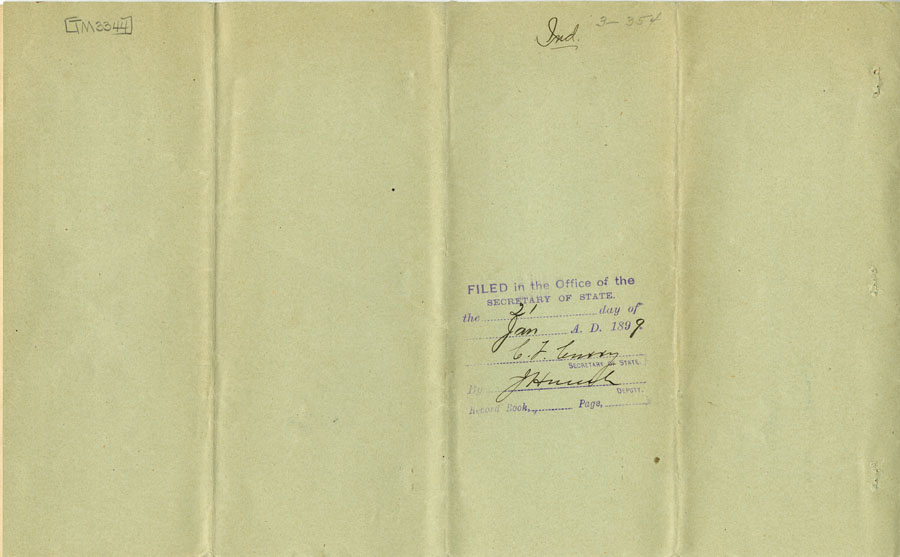 [TM3344]
Ind. 3-354
FILED in the Office of the
SECRETARY OF STATE.
the 21 day of
Jan A. D. 1899.
C. F. Curry
SECRETARY OF STATE.
By
DEPUTY.
Record Book, Page,